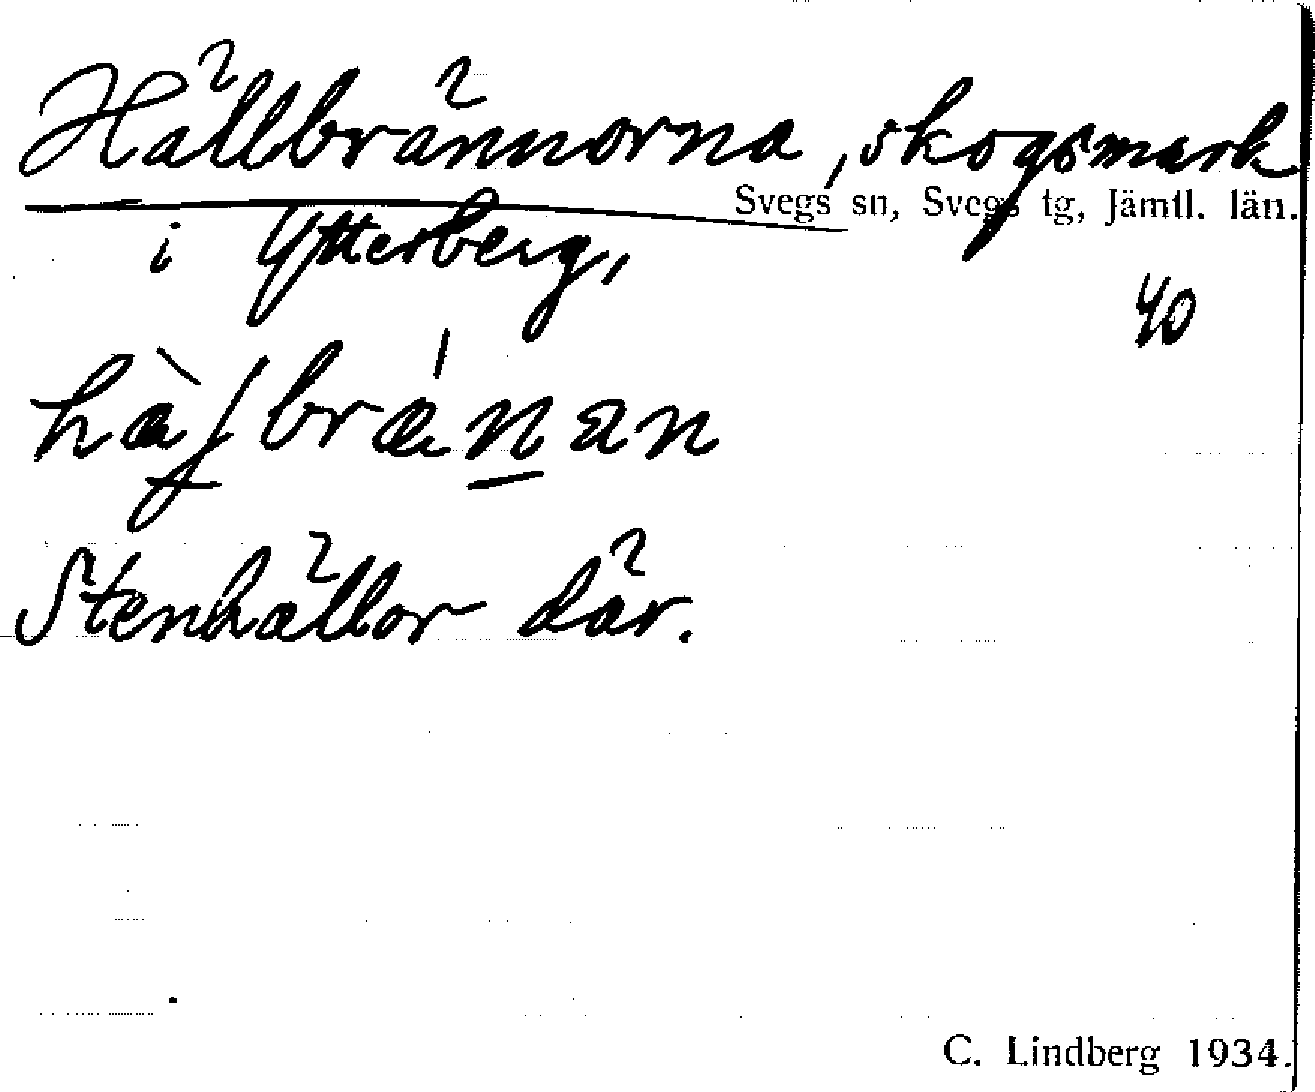 Hällbrännorna, skogsmark
Svegs sn, Svegs tg, Jämtl. län.
i Ytterberg,
40
Stenhällor där.
C. Lindberg 1934.